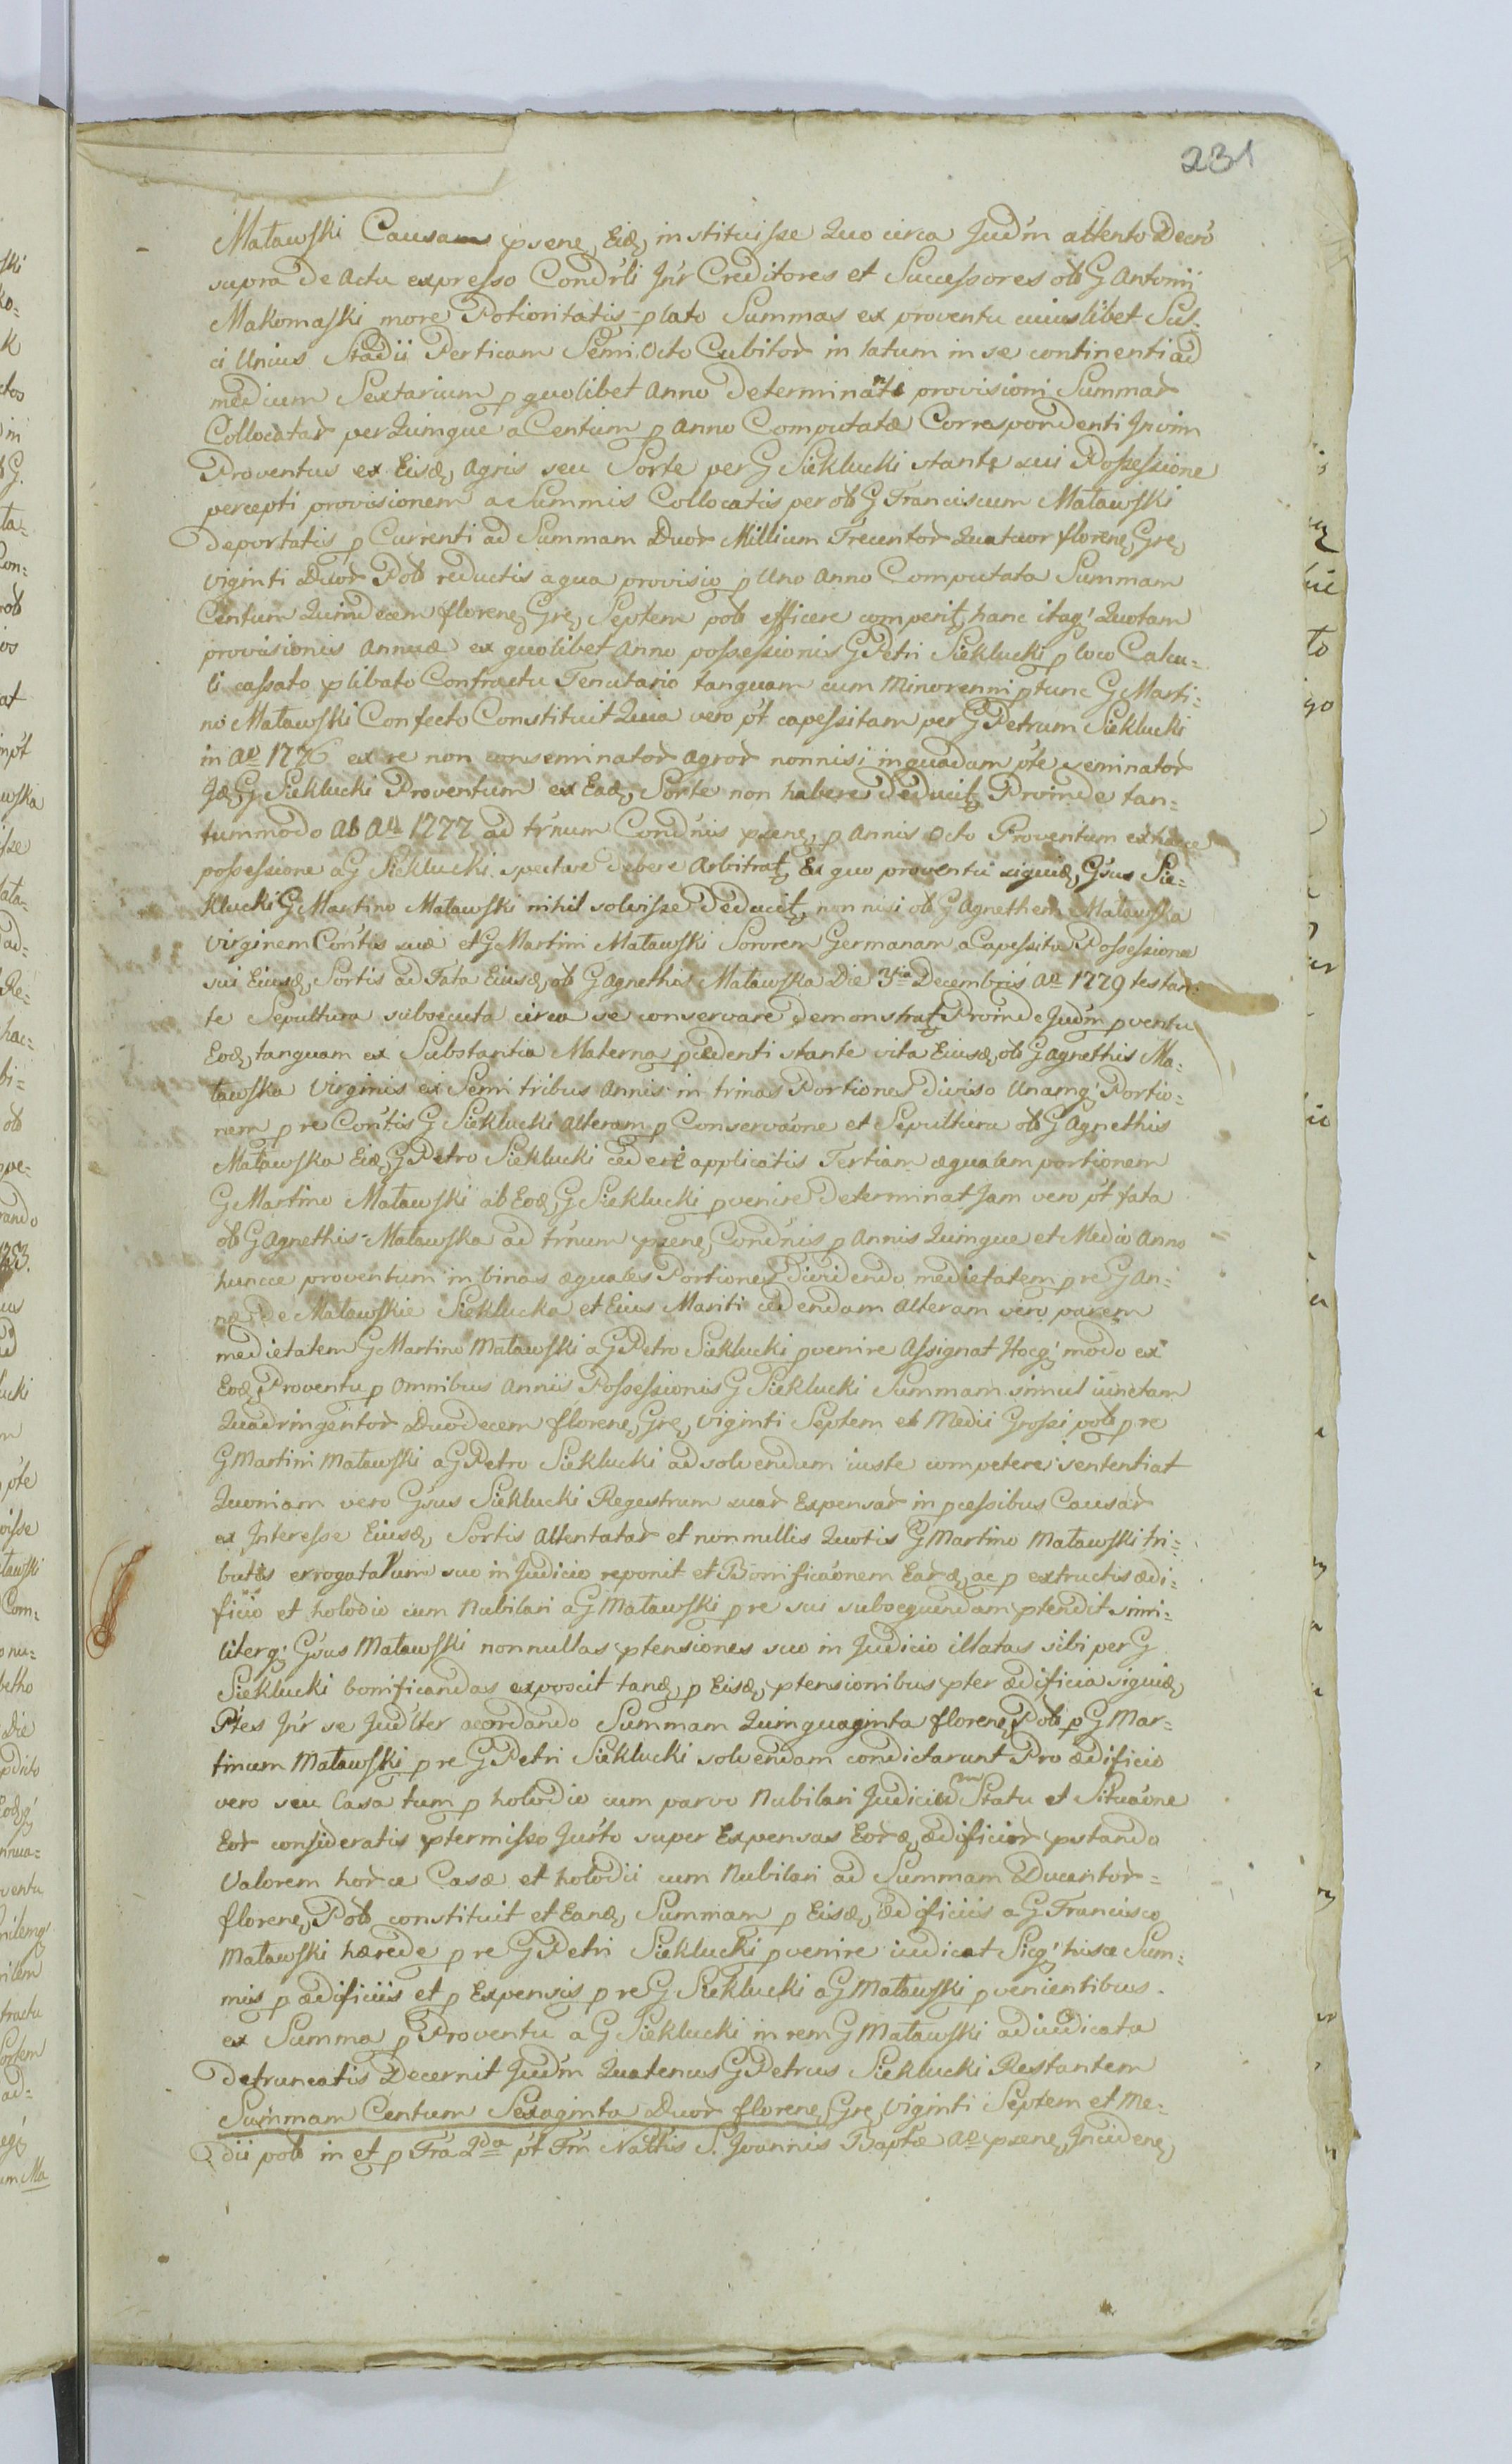 231
Maławski Causam psene, Eid, instituisse Quo circa Jud'm attento Decr'o
supra de actu expresso Cond'rli Jn'r Creditores et Successores ob G Antonii
Makomaski more Potioritatis plato Summas ex proventu cuiuslibet Sul-
ci Unius Stadii Perticam Semi Octo Cubitor in latum in se continenti ad
medium Sextarium p quolibet Anno determinate provisioni Summar
Collocatar per Quinque a Centum p Anno Computatæ Correspondenti
Proventus ex Eisd, Agris seu Sorte per G Sieklucki stante sui Possessione
percepti provisionem a Summis Collocatis per ob G Franciscum Maławski
deportatis p Currenti ad Summam Duor Millium Trecentor Quatuor florene, Gre,
viginti Duor Pol reductis a qua provisio p Uno Anno Computata Summam
Centum Quindecem florene, Gre, Septem pol efficere comperit, hanc itaq' Quotam
provisionis Annuæ ex quolibet Anno possessionis G Petri Sieklucki p loco Calcu-
li cassato plibato Contractu Tenutario tanquam cum Minorenni ptunc G Marti-
no Maławski Confecto Constituit Quia vero p't capessitam per G Petrum Sieklucki
in Ao 1776 ex re non conseminator agror nonnisi in quadam p'te seminator
Jd, G Sieklucki Proventum ex Ead, Sorte non habere deducit, Proinde tan-
tummodo Ab Ao 1777 ad tr'num Cond'nis psene, p Annis Octo Proventum ex hacce
possessione a G Sieklucki spectare debere Arbitrat, Ex quo proventu siquid, G'sus Sie-
klucki G Martino Maławski nihil solvisse Deducit, non nisi ob G Agnethem Maławska
virginem Con'tis suæ et G Martini Maławski Sororem Germanam a Capessita Possessione
sui Eiusd, Sortis ad Fata Eiusd, ob G Agnethis Maławska Die 3tia Decembris Ao 1779 testan-
te Sepultura subsecuta circa se conservare demonstrat, Proinde Jud'm pventu
Eod, tanquam ex Substantia Materna pcedenti stante vita Eiusd, ob G Agnethis Ma-
ławska Virginis ex Semi tribus Annis in trinas Portiones diviso Unamq' Portio-
nem p re Con'tis G Sieklucki Alteram p Conserva'one et Sepultura ob G Agnethis
Maławska Eid, G Petro Sieklucki cedere applicatis Tertiam æqualem portionem
G Martino Maławski ab Eod, G Sieklucki pvenire Determinat Jam vero p't fata
ob G Agnethis Maławska ad tr'num psene, Cond'nis p Annis Quinque et Medio Anno
huncce proventum in binas æquales Portiones dividendo medietatem p re G An-
næ de Maławskie Sieklucka et Eius Mariti cedendam Alteram vero parem
medietatem G Martino Maławski a G Petro Sieklucki pvenire Assignat Hocq' modo ex
Eod, Proventu p Omnibus Annis Possessionis G Sieklucki Summam simul iunctam
Quadringentor Duodecem florene, Gre, viginti Septem et Medii Grossi pol p re
G Martini Maławski a G Petro Sieklucki ad solvendum iuste competere sententiat
Quoniam vero G'sus Sieklucki Regestrum suar Expensar in pcessibus Causar
ex Interesse Eiusd, Sortis Attentatar et nonnullis Quotis G Martino Maławski tri-
butis errogatarum suo in Judicio reponit et Bonifica'onem Ear'd, ac p extructis ædi-
ficio et holodio cum Nubilari a G Maławski p re sui subsequendam ptendit simi-
literq' G'sus Maławski nonnullas ptensiones suo in Judicio illatas sibi per G
Sieklucki bonificandas exposcit tand, p Eisd, ptensionibus pter ædificia siquid,
P'tes Jn'r se Jud'lter acordando Summam Quinquaginta florene, Pol p G Mar-
tinum Maławski p re G Petri Sieklucki solvendam condictarunt Pro ædificio
vero seu Casa tum p holodio cum parvo Nubilari Judicium Statu et Situa'one
Eor consideratis ptermisso Jur'to super Expensas Eor'd, ædificior pstando
Valorem horce Casæ et holodii cum Nubilari ad Summam Ducentor
florene, Pol constituit et Eand, Summam p Eisd, ædificiis a G Francisco
Maławski hærede p re G Petri Sieklucki pvenire iudicat Sicq' hisce Sum-
mis p ædificiis et p Expensis p re G Sieklucki a G Maławski pvenientibus
ex Summa p Proventu a G Sieklucki in rem G Maławski adiudicata
detruncatis Decernit Jud'm Quatenus G Petrus Sieklucki Restantem
Summam Centum Sexaginta Duor florene, Gre, viginti Septem et Me-
dii pol in et p Fra 2da p't F'm Na'ttis S. Joannis Baptæ Ao psene, Incidene,